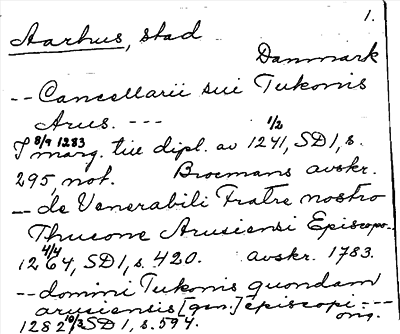 1.
Aarhus, stad
Danmark
-- Cancellarii sui Tukonis
Arus. ---
8/9 1283 1/2
I marg. till dipl. av 1241, SD1, s.
295, not. Brocmans avskr.
-- de Venerabili Fratre nostro
Thucone Arusiensi Episcopo--
4/4
1264, SD1, s. 420. avskr. 1783.
-- domini Tukonis quondam
arusiensis [gen.] episcopi. ---
orig.
1282 10/3 SD1, s. 594.